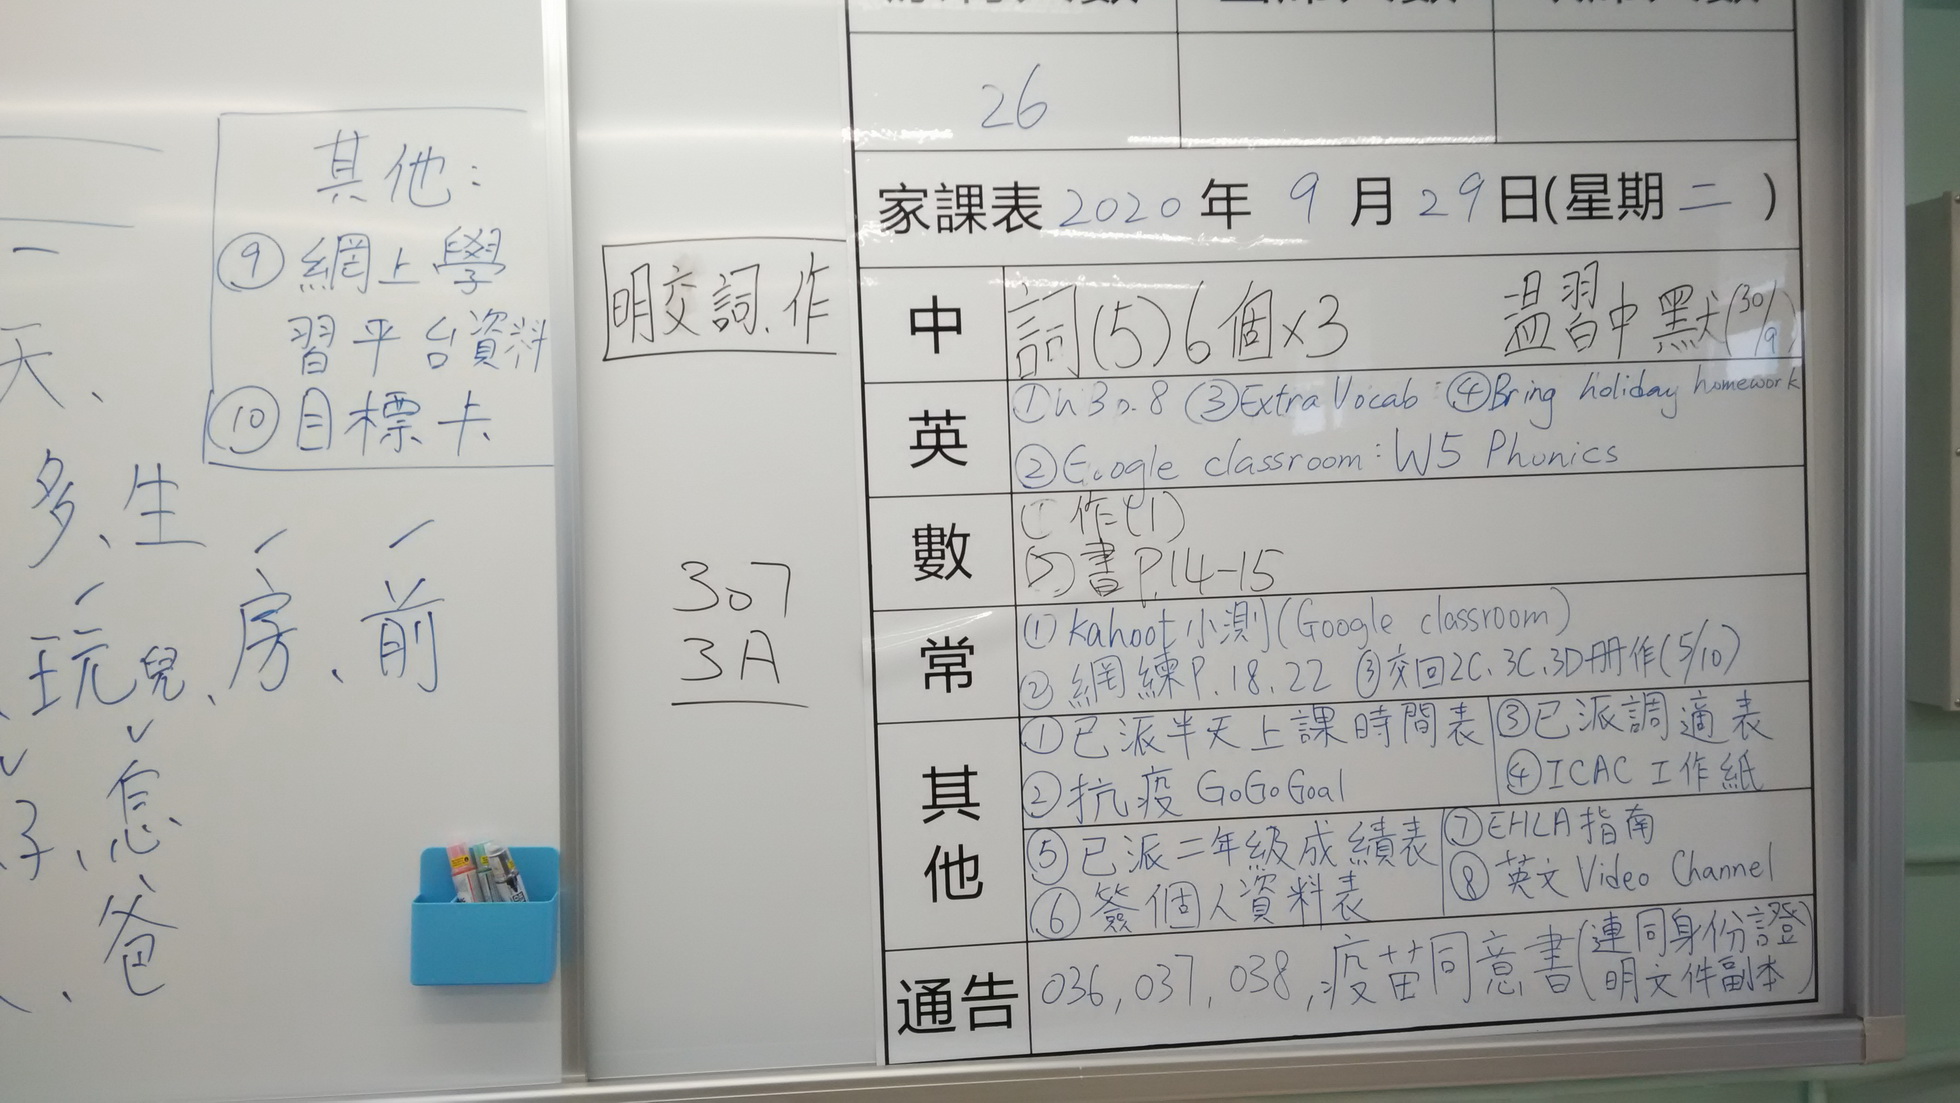 一
天、
多、生
玩兒、房、前
子、怠
爸
其他:
⑨網上學
習平台資料
⑩目標卡
明交詞、作
307
3A
26
家課表 2020 年 9 月 29 日(星期 二 )
中 詞(5)6個×3 温習中默(30/9)
英 ①W3p.8 ③Extra Vocab ④Bring holiday homework
②Google classroom: W5 Phonics
數 ①作(1)
②書P.14-15
常 ①Kahoot小測(Google classroom)
②網練P.18.22 ③交回2C.3C.3D冊作(5/10)
其他
①已派半天上課時間表 ③已派調適表
②抗疫GoGoGoal ④ICAC工作紙
⑤已派二年級成績表 ⑦EHLA指南
⑥簽個人資料表 ⑧英文Video Channel
通告 036, 037, 038, 疫苗同意書(連同身份證明文件副本)